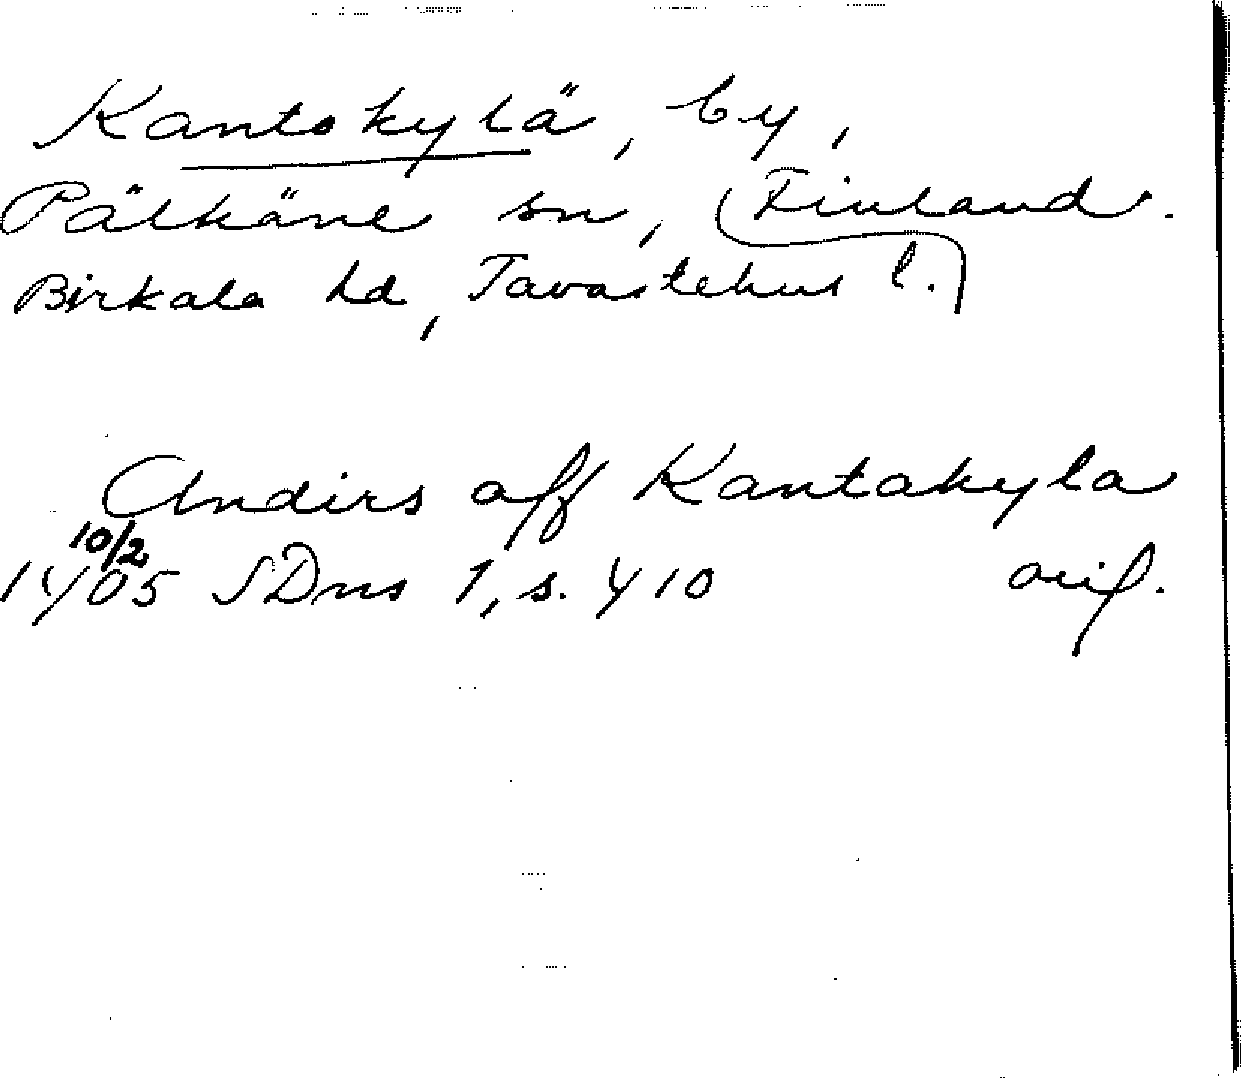 Kantokylä, by,
Pälkäne sn, Finland.
Birkala hd, Tavastehus l.
Andirs aff Kantakyla
10/2
1405 SDns 1, s. 410 orig.